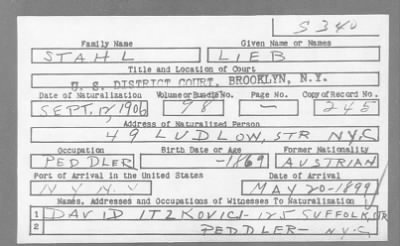 S340
Family Name Given Name or Names
STAHL LIEB
Title and Location of Court
U. S. DISTRICT COURT, BROOKLYN, N.Y.
Date of Naturalization Volume or Bundle No. Page No. Copy of Record No.
SEPT. 12/1906 98 — 245
Address of Naturalized Person
49 LUDLOW, STR NY.C
Occupation Birth Date or Age Former Nationality
PEDDLER -1869 AUSTRIAN
Port of Arrival in the United States Date of Arrival
N Y N. Y MAY 20-1899
Names, Addresses and Occupations of Witnesses To Naturalization
1 DAVID ITZKOVICH-125 SUFFOLK STR
2 PEDDLER- NY.C